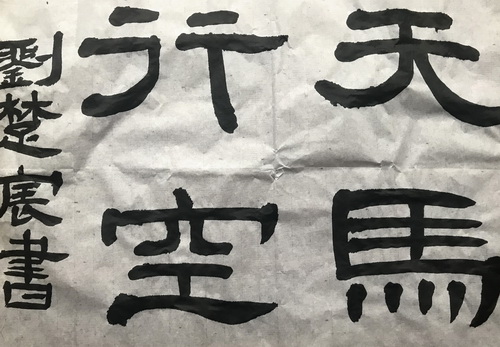 天馬
行空
劉楚宸書